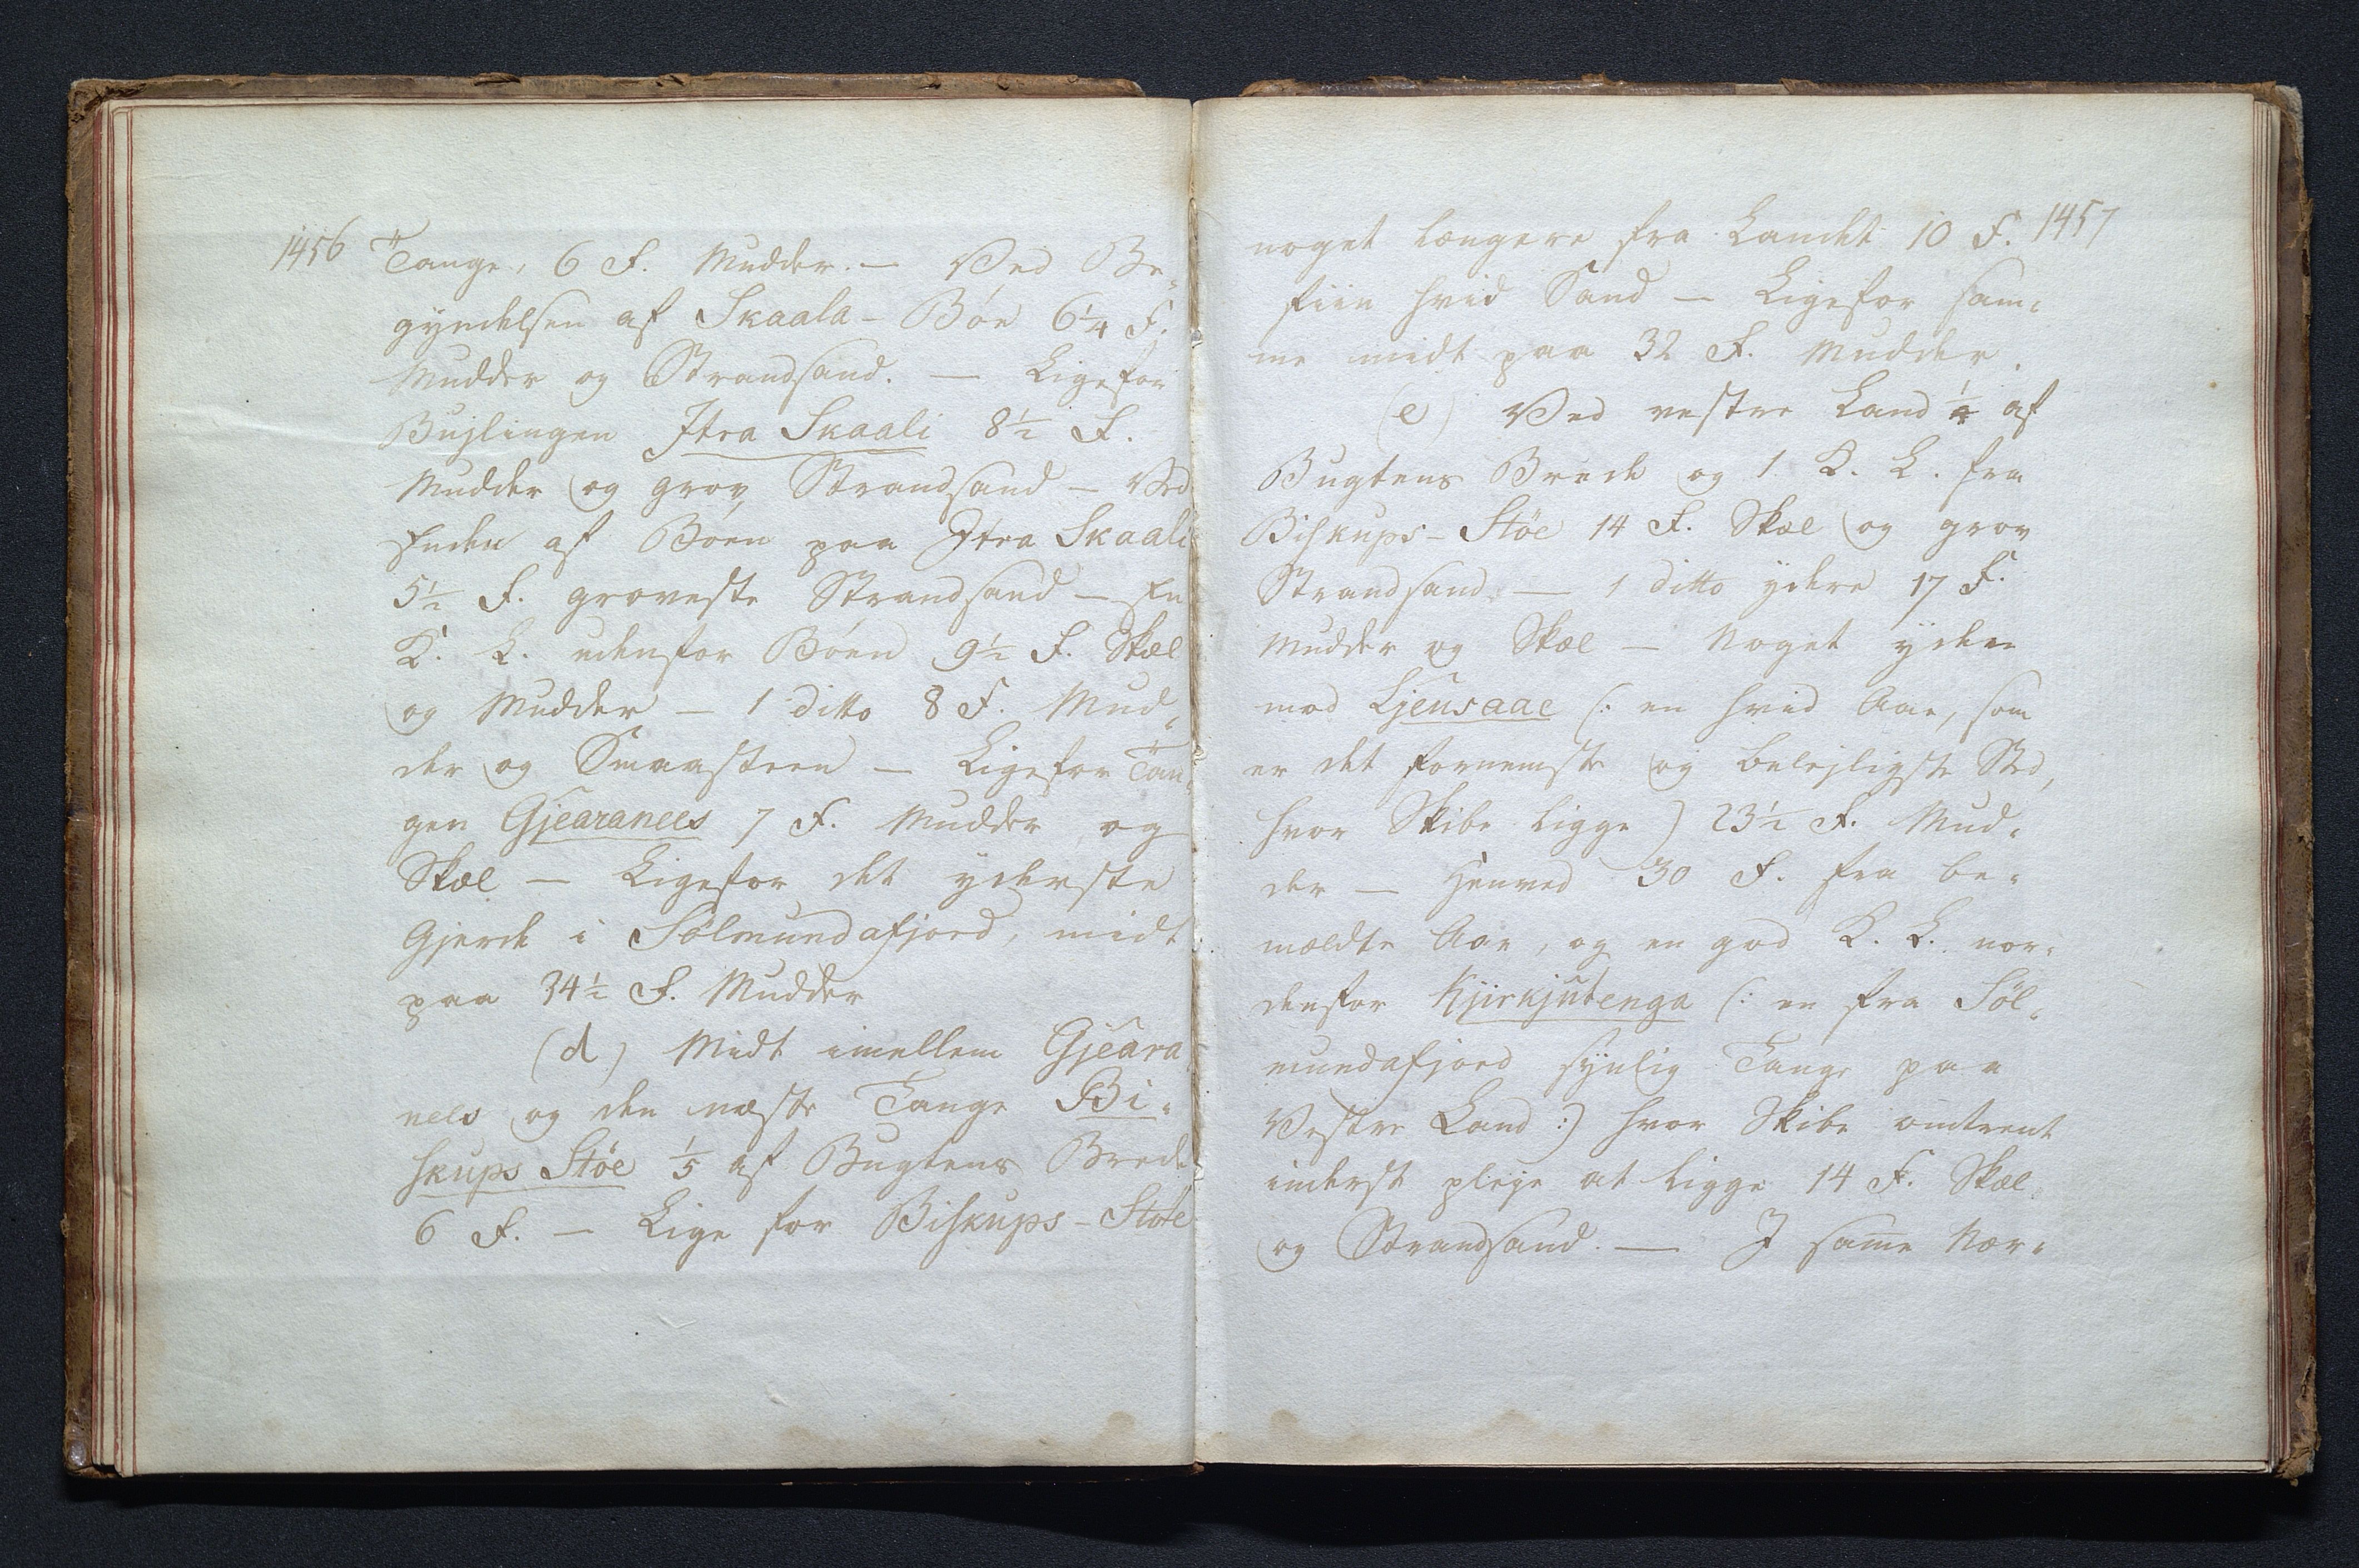 1456
Tange, 6 F. Mudder. — Ved Be-
gyndelsen af Skaala-Bøn 6¼ F.
Mudder og Strandsand. — Ligefor
Bujlingen Jtra Skaali 8½ F.
Mudder og grov Strandsand — Ved
Enden af Bøen paa Jtra Skaali
5½ F. groveste Strandsand — En
K. L. udenfor Bøen 9½ F. Skæl
og Mudder — 1 ditto 8 F. Mud-
der og Smaasteen — Ligefor Tan-
gen Gjearanees 7 F. Mudder og
Skæl — Ligefor det yderste
Gjerde i Sölmundafjord, midt
paa 34½ F. Mudder
(d) Midt imellem Gjeara
nees og den næste Tange Bi-
skups Støe ⅕ af Bugtens Brede
6 F. — Lige for Biskups-Støe
1457
noget længere fra Landet 10 F.
fiin hvid Sand — Ligefor sam-
me midt paa 32 F. Mudder.
(e) Ved vestre Land ¼ af
Bugtens Brede og 1 K. L. fra
Biskups-Støe 14 F. Skæl og grov
Strandsand. — 1 ditto ydere 17 F.
Mudder og Skæl — Noget ydere
mod Ljensaae (: en hvid Aae, som
er det fornemste og belejligste Sted,
hvor Skibe ligge) 23½ F. Mud-
der — Henved 30 F. fra be-
mældte Aae, og en god K. L. nor-
denfor Kjirkjutenga (: en fra Söl-
mundafjord synlig Tange paa
Vestre Land :) hvor Skibe omtrent
inderst pleje at ligge 14 F. Skæl
og Strandsand. — J same Nær-